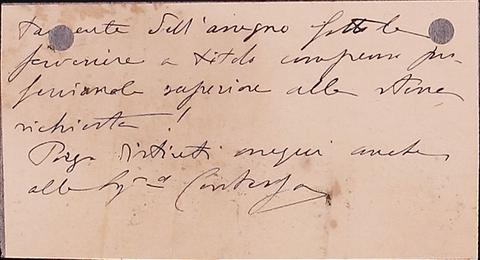 tamente dell'assegno fattole
pervenire a titolo compenso pro-
fessionale superiore alla stessa
richiesta!
Porga distinti ossequi anche
alla Sig.ra Contessa